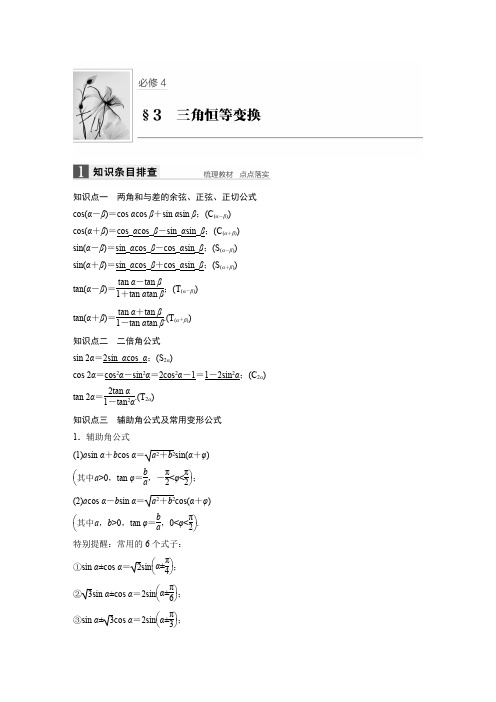 必修4
§3 三角恒等变换
1 知识条目排查 梳理教材 点点落实
知识点一 两角和与差的余弦、正弦、正切公式
cos(α－β)＝cos αcos β＋sin αsin β；(C(α－β))
cos(α＋β)＝cos_αcos_β－sin_αsin_β；(C(α＋β))
sin(α－β)＝sin_αcos_β－cos_αsin_β；(S(α－β))
sin(α＋β)＝sin_αcos_β＋cos_αsin_β；(S(α＋β))
tan(α－β)＝(tan α－tan β)/(1＋tan αtan β)；(T(α－β))
tan(α＋β)＝(tan α＋tan β)/(1－tan αtan β).(T(α＋β))
知识点二 二倍角公式
sin 2α＝2sin_αcos_α；(S2α)
cos 2α＝cos²α－sin²α＝2cos²α－1＝1－2sin²α；(C2α)
tan 2α＝2tan α/(1－tan²α).(T2α)
知识点三 辅助角公式及常用变形公式
1．辅助角公式
(1)asin α＋bcos α＝√(a²＋b²)sin(α＋φ)
(其中a>0，tan φ＝b/a，－π/2<φ<π/2)；
(2)acos α－bsin α＝√(a²＋b²)cos(α＋φ)
(其中a，b>0，tan φ＝b/a，0<φ<π/2).
特别提醒：常用的6个式子：
①sin α±cos α＝√2sin(α±π/4)；
②√3sin α±cos α＝2sin(α±π/6)；
③sin α±√3cos α＝2sin(α±π/3)；